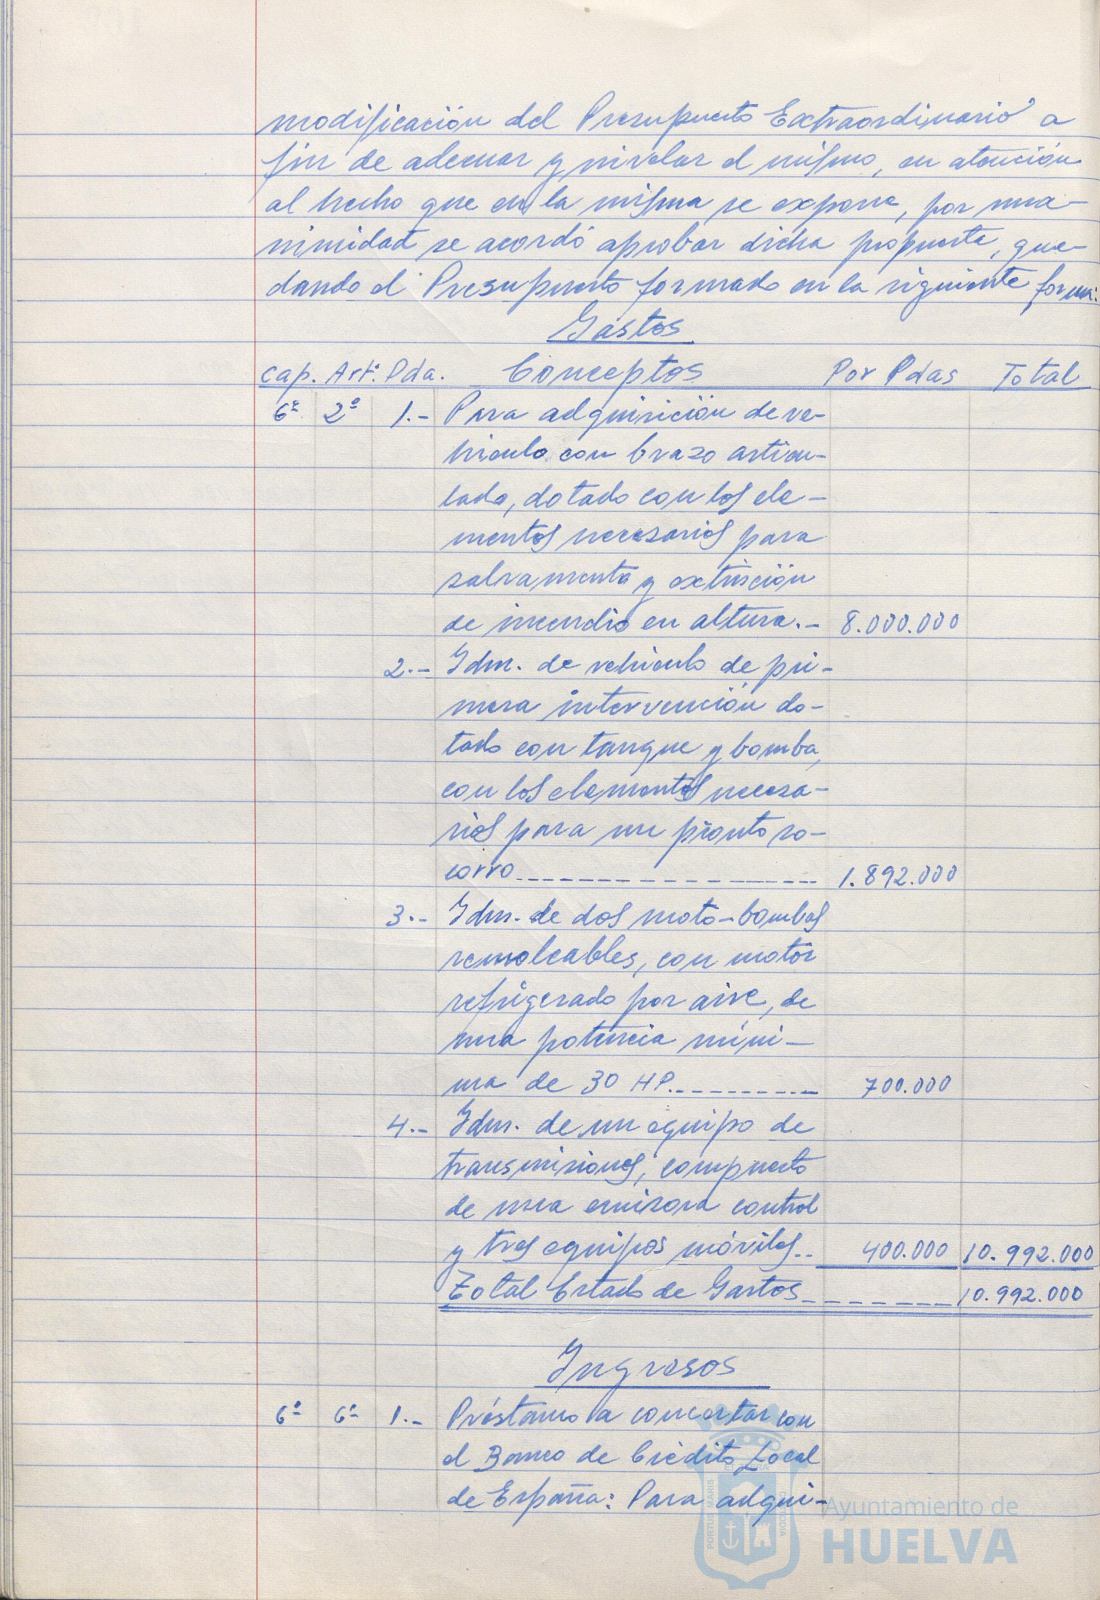 modificación del Presupuesto Extraordinario a
fin de adecuar y nivelar el mismo, en atención
al hecho que en la misma se expone, por una-
nimidad se acordó aprobar dicha propuesta, que-
dando el Presupuesto formado en la siguiente forma:
Gastos
Cap. Artº. Pda. Conceptos Por Pdas Total
6º 2º 1.- Para adquisición de ve-
hículo con brazo articu-
lado, dotado con los ele-
mentos necesarios para
salvamento y extinción
de incendio en altura.- 8.000.000
2.- Idm. de vehículo de pri-
mera intervención do-
tado con tanque y bomba,
con los elementos necesa-
rios para un pronto so-
corro 1.892.000
3.- Idm. de dos moto-bombas
remolcables, con motor
refrigerado por aire, de
una potencia míni-
ma de 30 HP. 700.000
4.- Idm. de un equipo de
transmisiones, compuesto
de una emisora control
y tres equipos móviles.. 400.000 10.992.000
Total Estado de Gastos 10.992.000
Ingresos
6º 6º 1.- Préstamo a concertar con
el Banco de Crédito Local
de España: Para adqui-
Ayuntamiento de
HUELVA